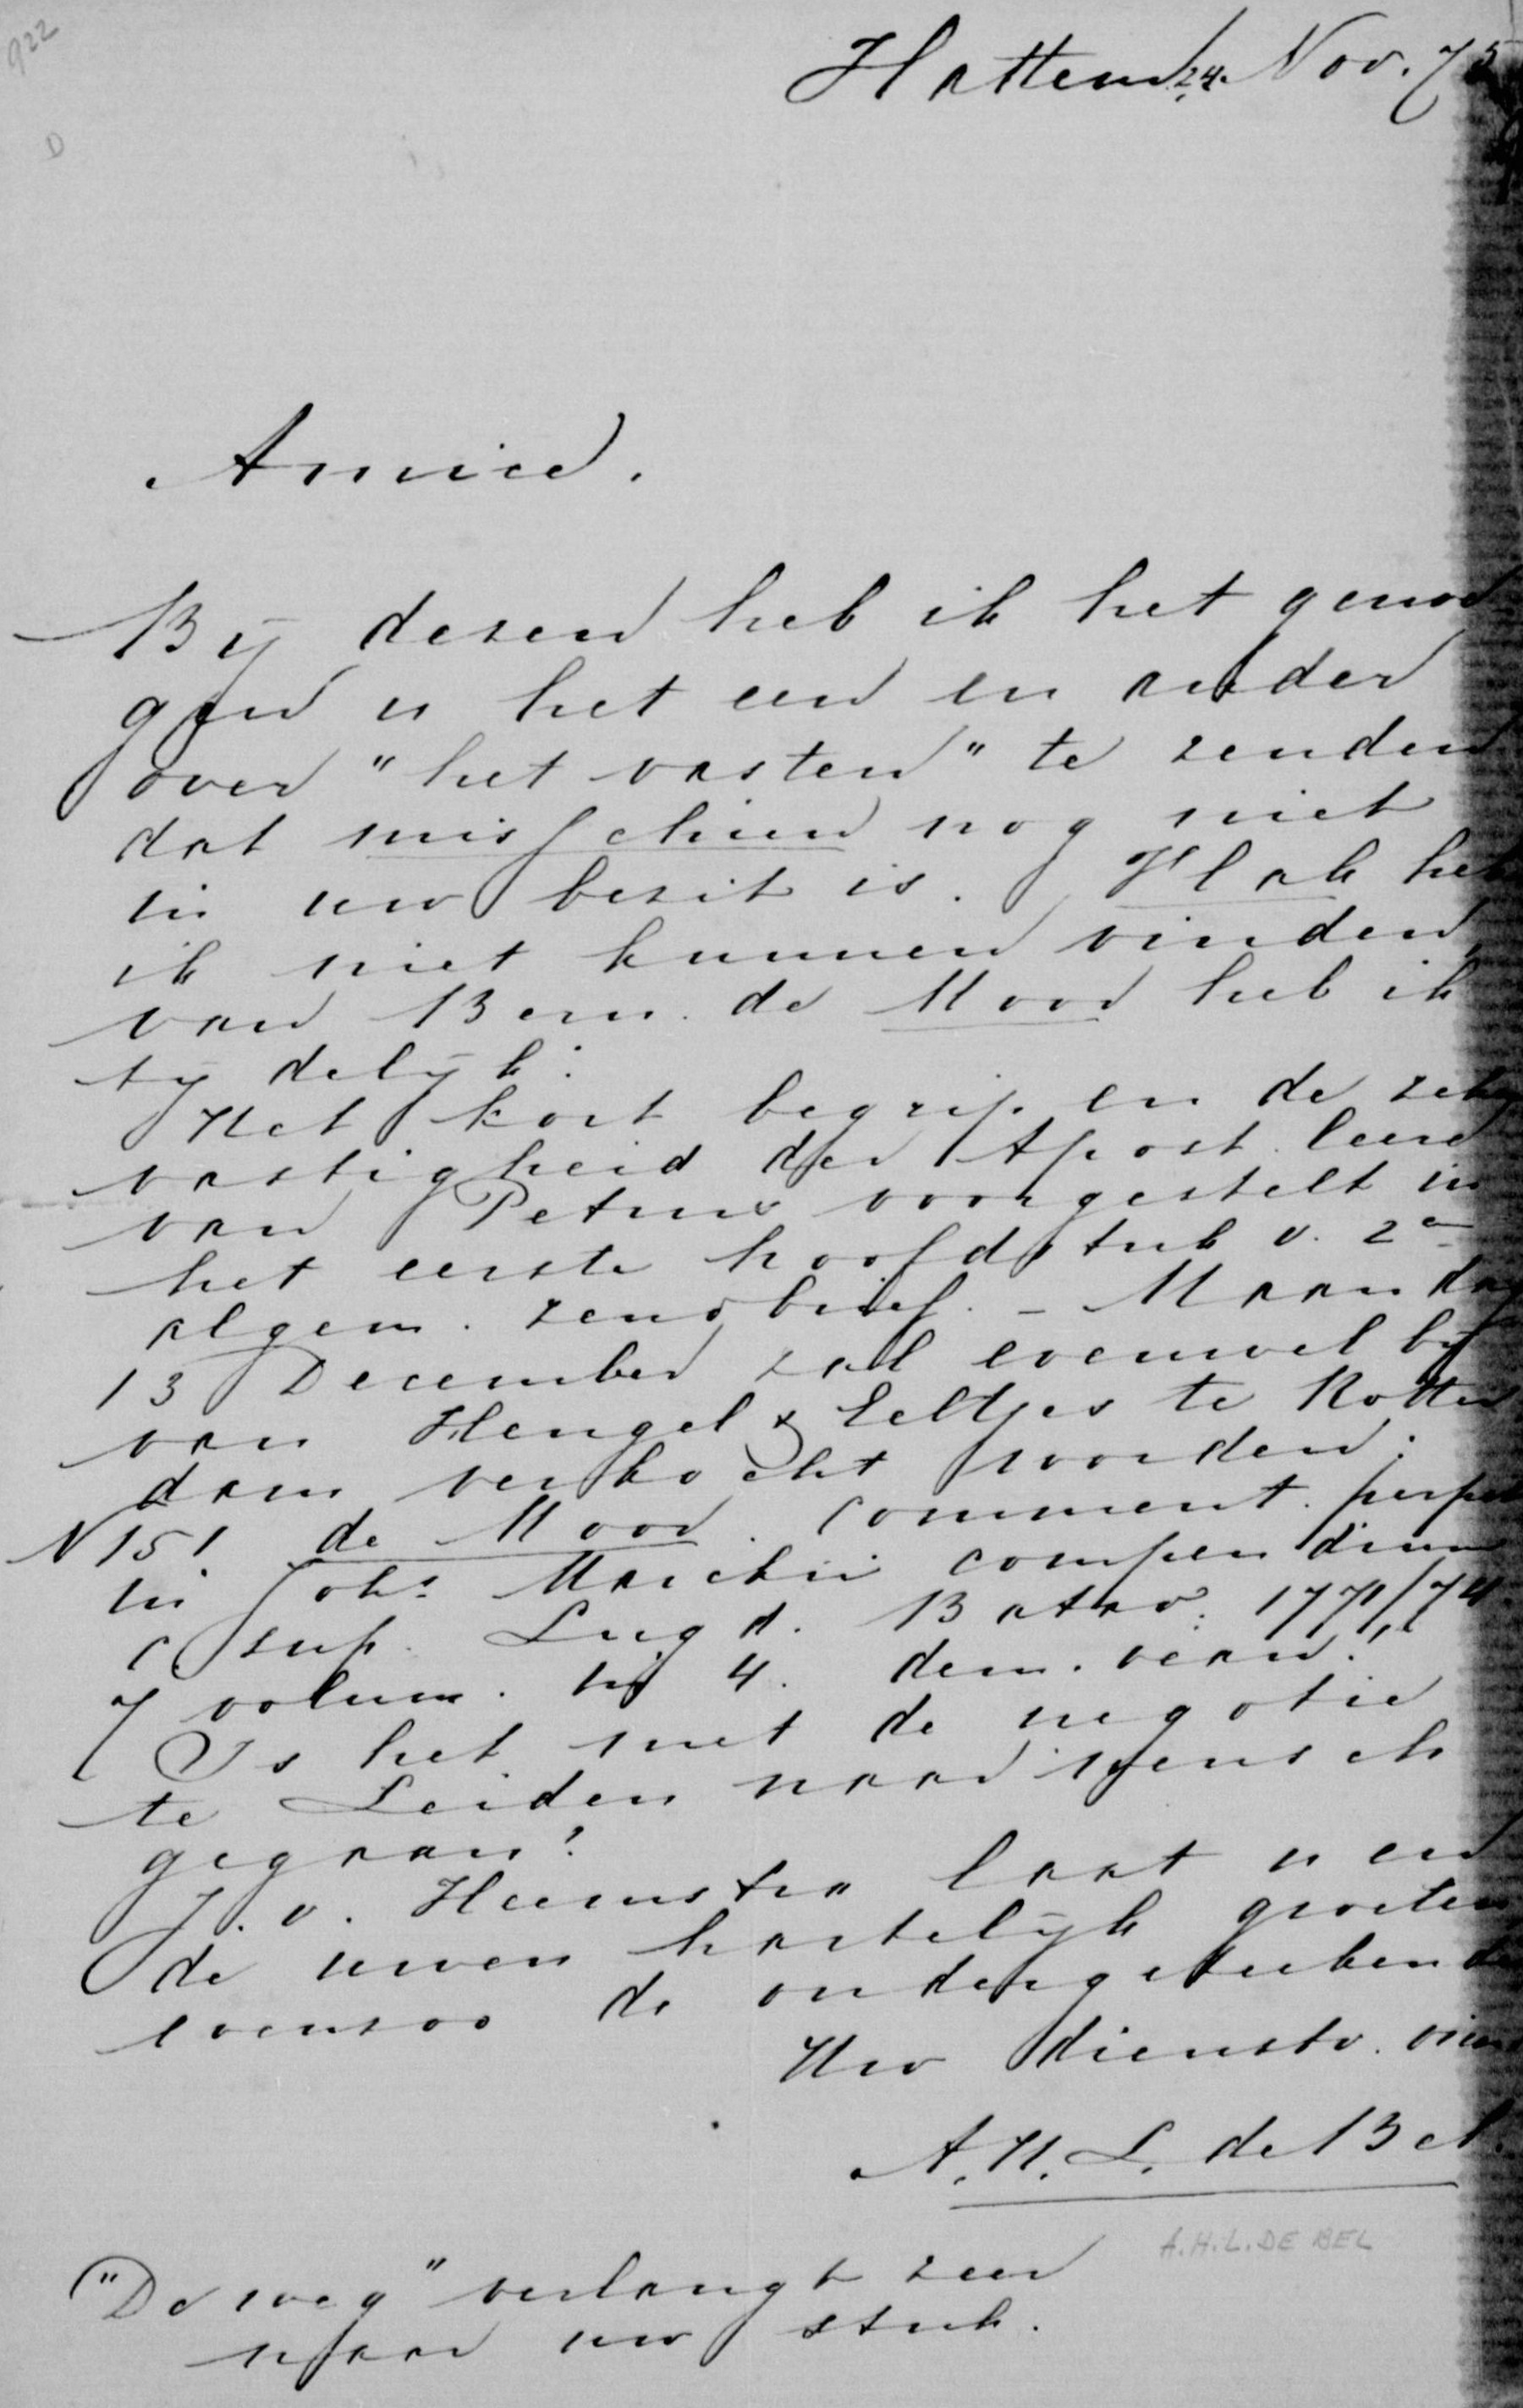 922
D
Hattem 24 Nov. 75
Amice.
Bij dezen heb ik het genoe-
gen u het een en ander
over "het vasten" te zenden
dat misschien nog niet
in uw bezit is. Vlak heb
ik niet kunnen vinden,
van Bern. de Moor heb ik
tijdelijk:
Het kort begrip en de zeke
vastigheid der Apost. leere
van Petrus voorgestelt in
het eerste hoofdstuk v. 2en
algem. zendbrief. - Maandag
13 December zal evenwel bij
van Hengel & Eeltjes te Rotter
dam verkocht worden:
N 151 de Moor. Comment. perpet
in Johs Marckii compendium
c. sup. Lugd. Batav. 1771/74.
7 volum. in 4.
Is het met de negotie
te Leiden naar wensch
gegaan?
J. v. Heemstra laat u en
de uwen hartelijk groeten
evenzoo de ondergeteekende
Uw dienstv. vriend
A. H. L. de Bel.
A.H.L. DE BEL
"De weg" verlangt zeer
naar uw stuk.